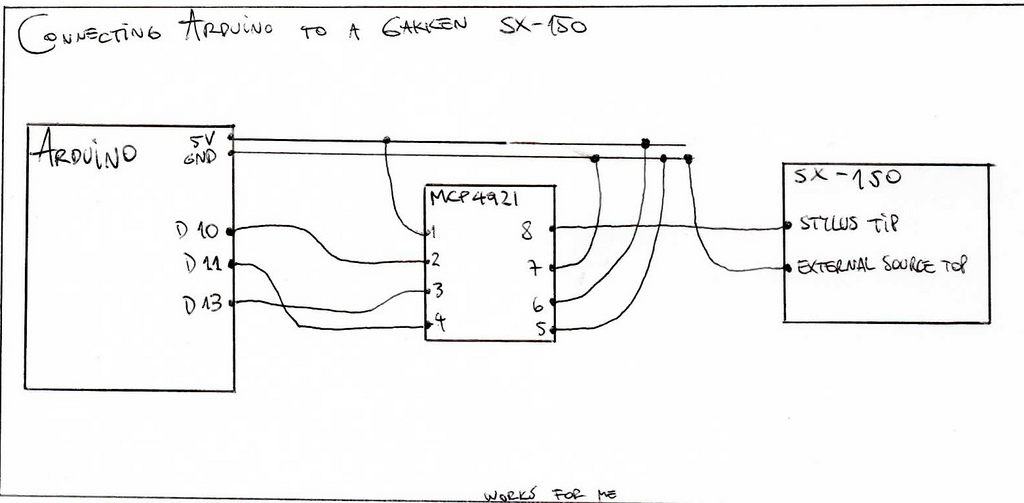 CONNECTING ARDUINO TO A GAKKEN SX-150
ARDUINO
5V
GND
D 10
D 11
D 13
MCP4921
1
2
3
4
8
7
6
5
SX-150
STYLUS TIP
EXTERNAL SOURCE TOP
WORKS FOR ME